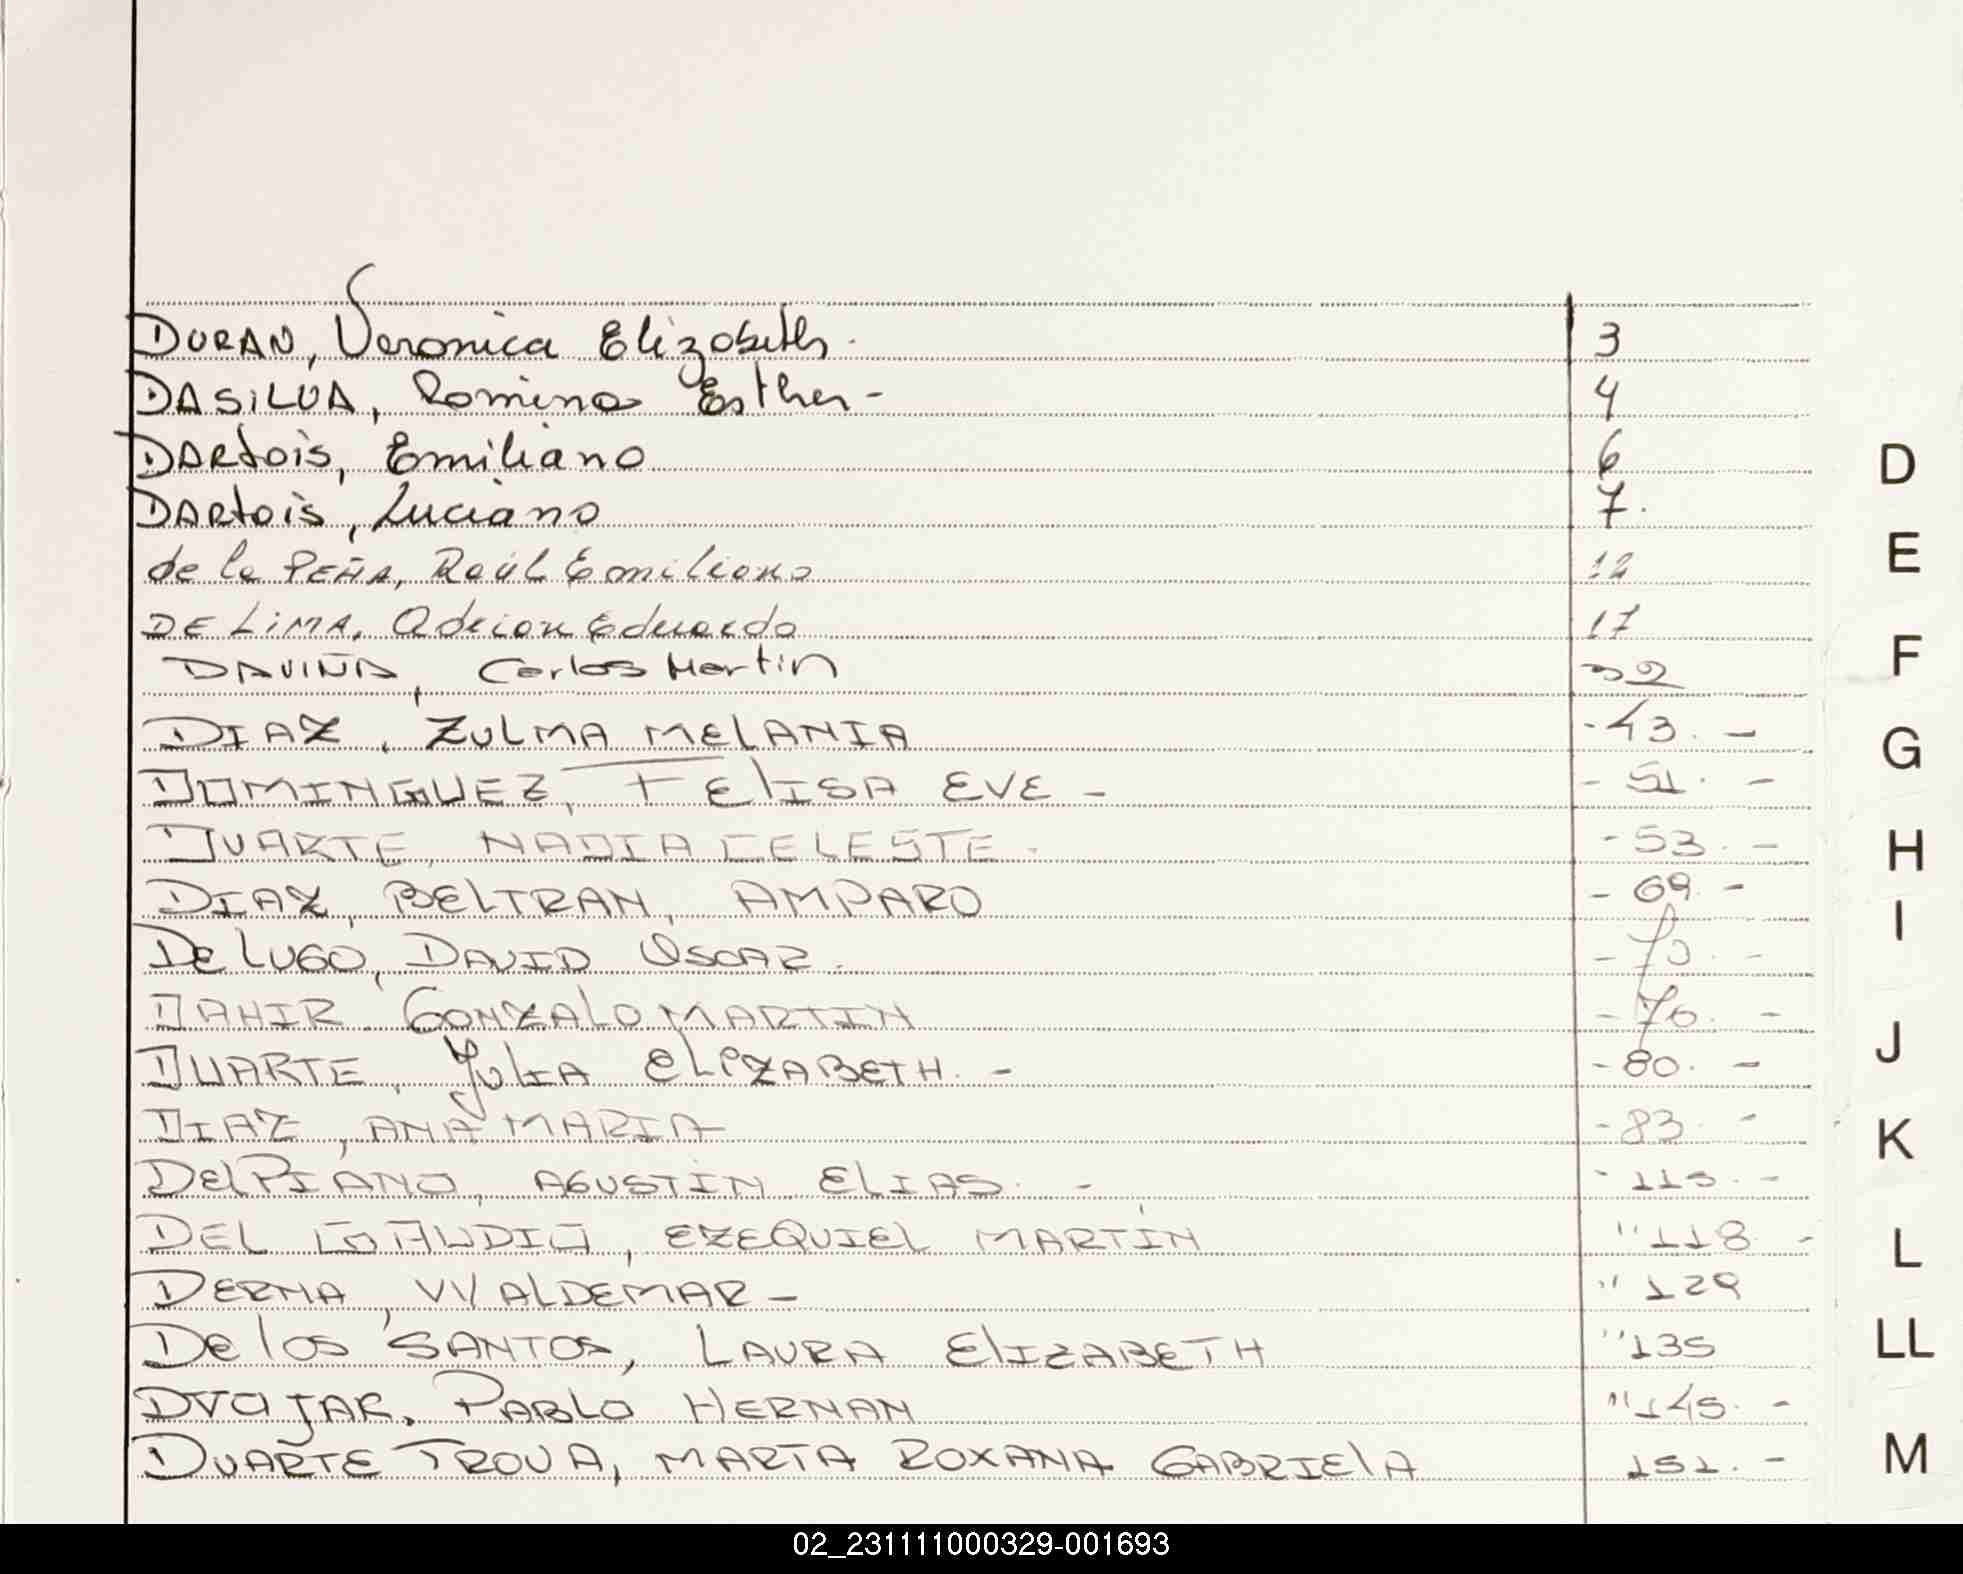 DURAN, Veronica Elizabeth. 3
DASILVA, Romina Esther - 4
DARtois, Emiliano 6
DARtois, Luciano 7.
de la PEÑA, Raúl Emiliano 12
DE LIMA, Adrian Eduardo 17
DAVIÑA, Carlos Martin 32
DIAZ, ZULMA MELANIA - 43. -
DOMINGUEZ, FELISA EVE - - 51. -
DUARTE, NADIA CELESTE - - 53. -
DIAZ, BELTRAN, AMPARO - 69. -
De LUGO, DAVID OSCAR. - 70. -
DAHIR GONZALO MARTIN - 76. -
DUARTE, JULIA ELIZABETH. - - 80. -
DIAZ, ANA MARIA - 83. -
DelPIANO, AGUSTIN ELIAS. - - 115. -
DEL GAUDIO, EZEQUIEL MARTÍN " 118 -
DERNA, WALDEMAR - " 129
De los SANTOS, LAURA ELIZABETH " 135
PABLO HERNAN " 145. -
DUARTE TROVA, MARTA ROXANA GABRIELA 151. -
D
E
F
G
H
I
J
K
L
LL
M
02_231111000329-001693